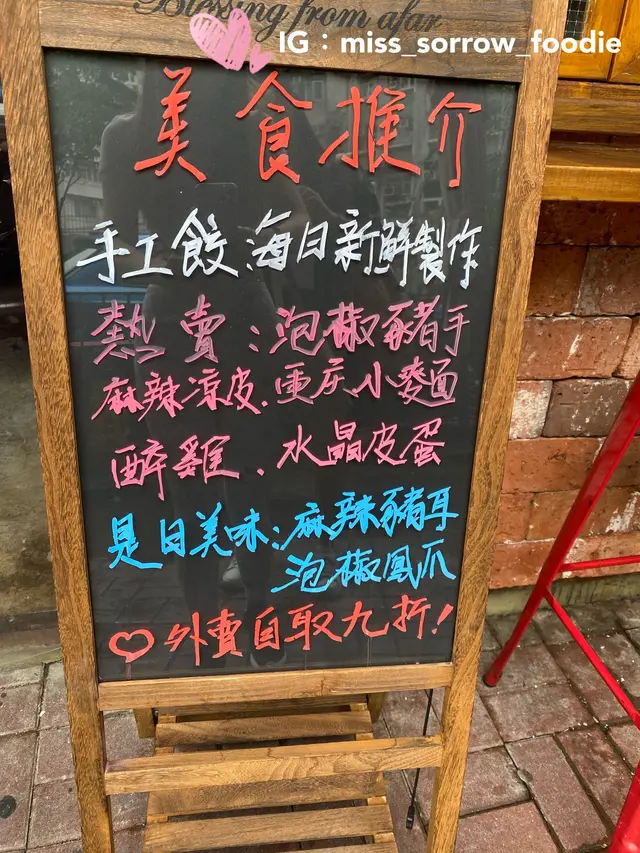 Blessing from afar
IG：miss_sorrow_foodie
美食推介
手工餃:每日新鮮製作
熱賣:泡椒豬手
麻辣凉皮.重庆小麵
醉雞、水晶皮蛋
是日美味:麻辣豬耳
泡椒鳳爪
♡外賣自取九折!